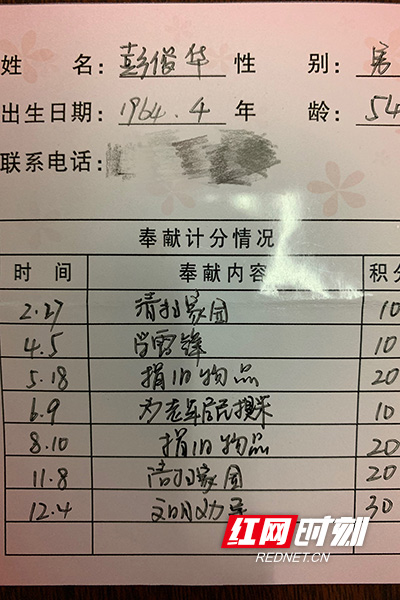 姓 名: 彭俊华 性 别: 男
出生日期: 1964.4 年 龄: 54
联系电话:
奉献计分情况
时 间 奉献内容 积分
2.27 清扫家园 10
4.5 学雷锋 10
5.18 捐旧物品 20
6.9 为老年居民 10
8.10 捐旧物品 20
11.8 清扫家园 20
12.4 文明劝导 30
红网时刻
REDNET.CN